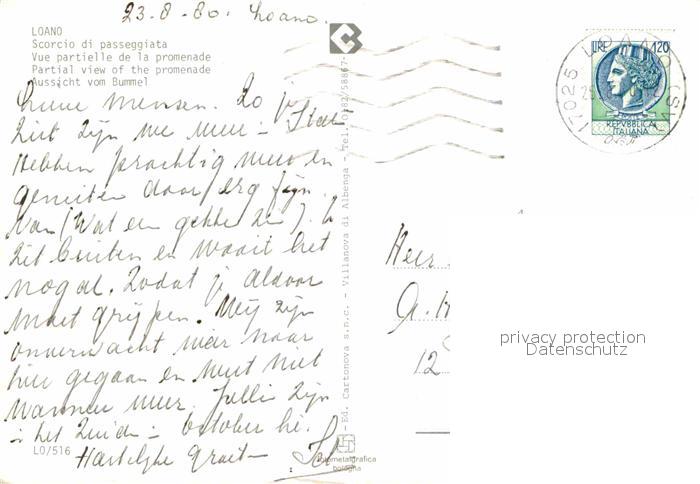 23-8-80. Loano.
LOANO
Scorcio di passeggiata
Vue partielle de la promenade
Partial view of the promenade
Aussicht vom Bummel
Lieve mensen. Zo je
ziet zijn we weer in Italië
Hebben prachtig weer en
genieten daar erg fijn
van (Wat een gekke zin). Ik
zit buiten en waait het
nogal. Zodat je aldoor
moet grijpen. Wij zijn
onverwacht weer naar
hier gegaan en weet niet
wanneer weer. Jullie zijn
in het Zuiden in October hé.
Hartelijke groet
LO/516
- Ed. Cartonova s.n.c. - Villanova di Albenga - Tel. 0182/58867-
fotometalgrafica
bologna
LIRE 120
REPVBBLICA
ITALIANA
17025 LOANO (SV)
Heer
A.
12
privacy protection
Datenschutz